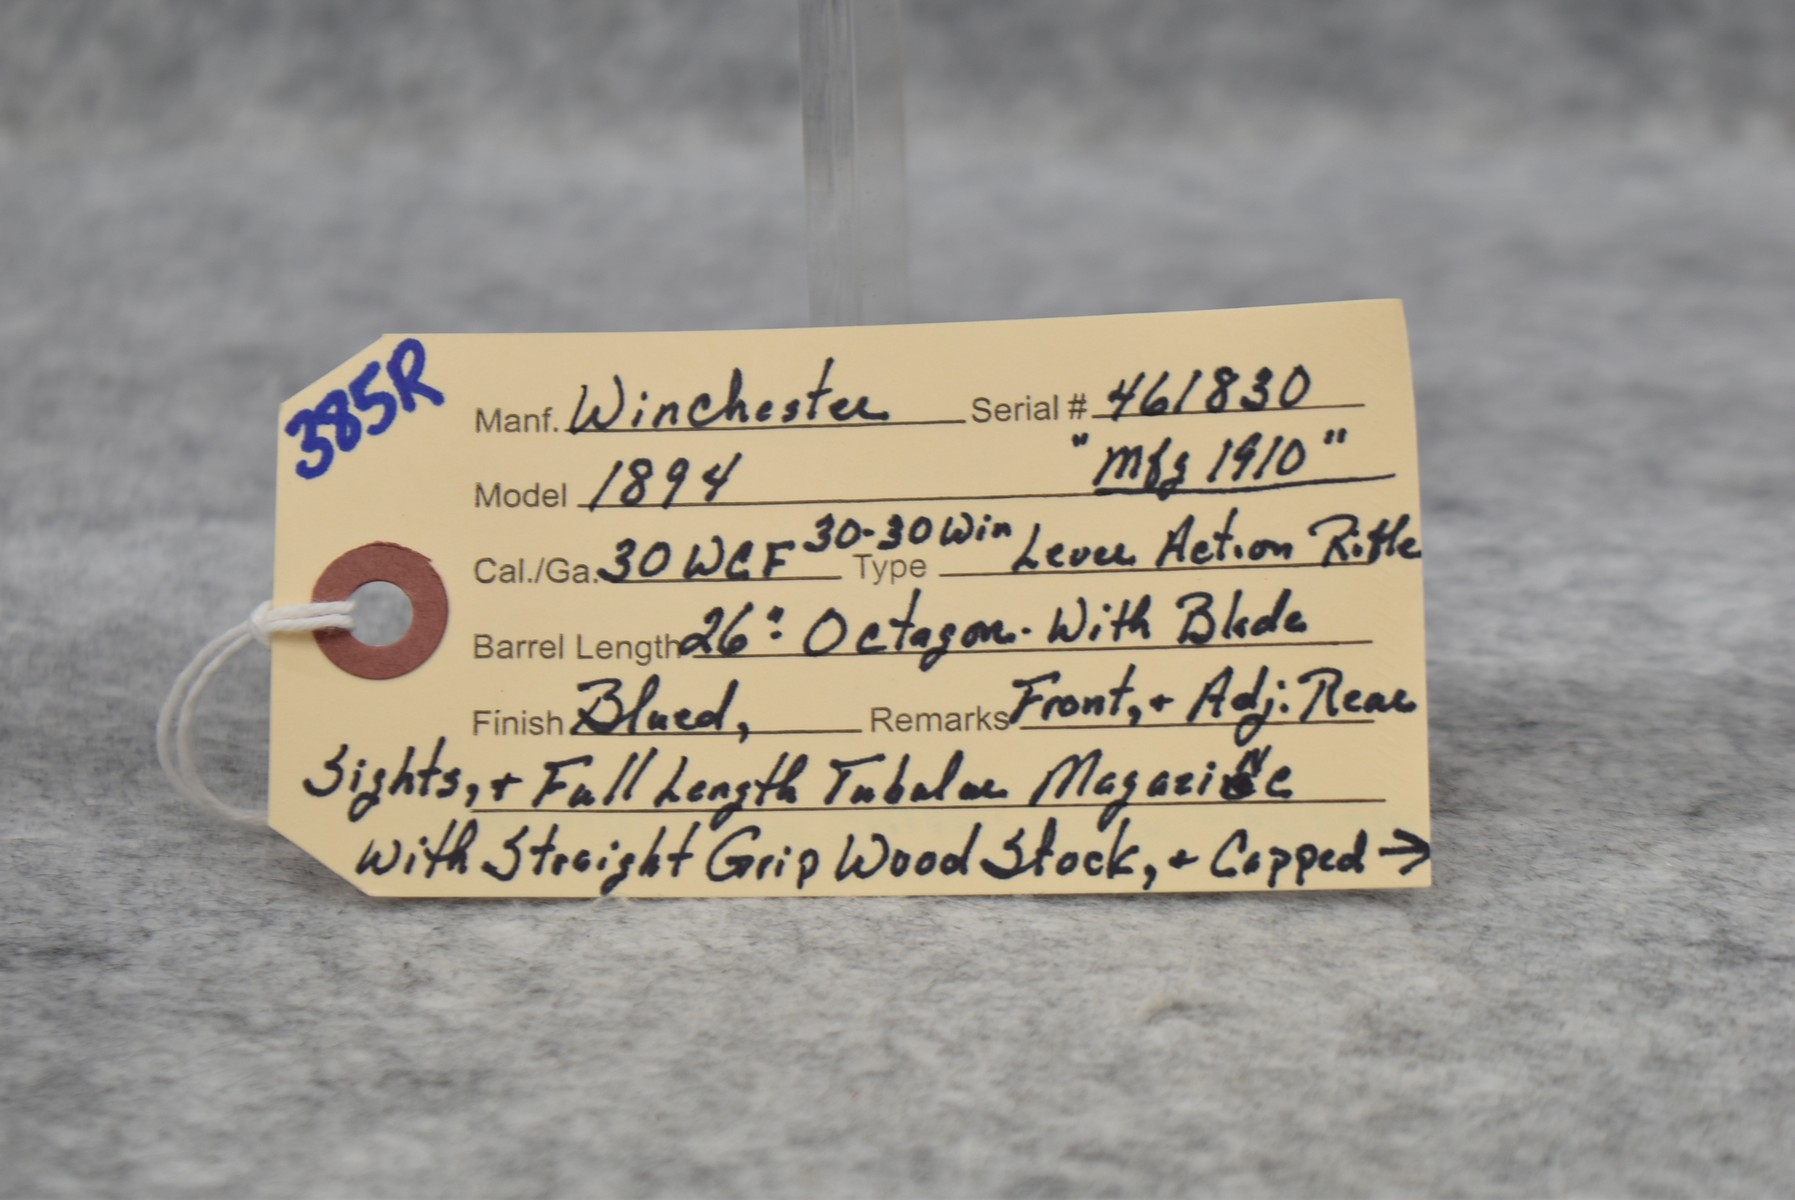 385R
Manf. Winchester Serial # 461830
Model 1894 "Mfg 1910"
Cal./Ga. 30 WCF 30-30 Win Type Lever Action Rifle
Barrel Length 26" Octagon. With Blade
Finish Blued, Remarks Front, + Adj. Rear
Sights, + Full Length Tubular Magazine
With Straight Grip Wood Stock, + Capped →